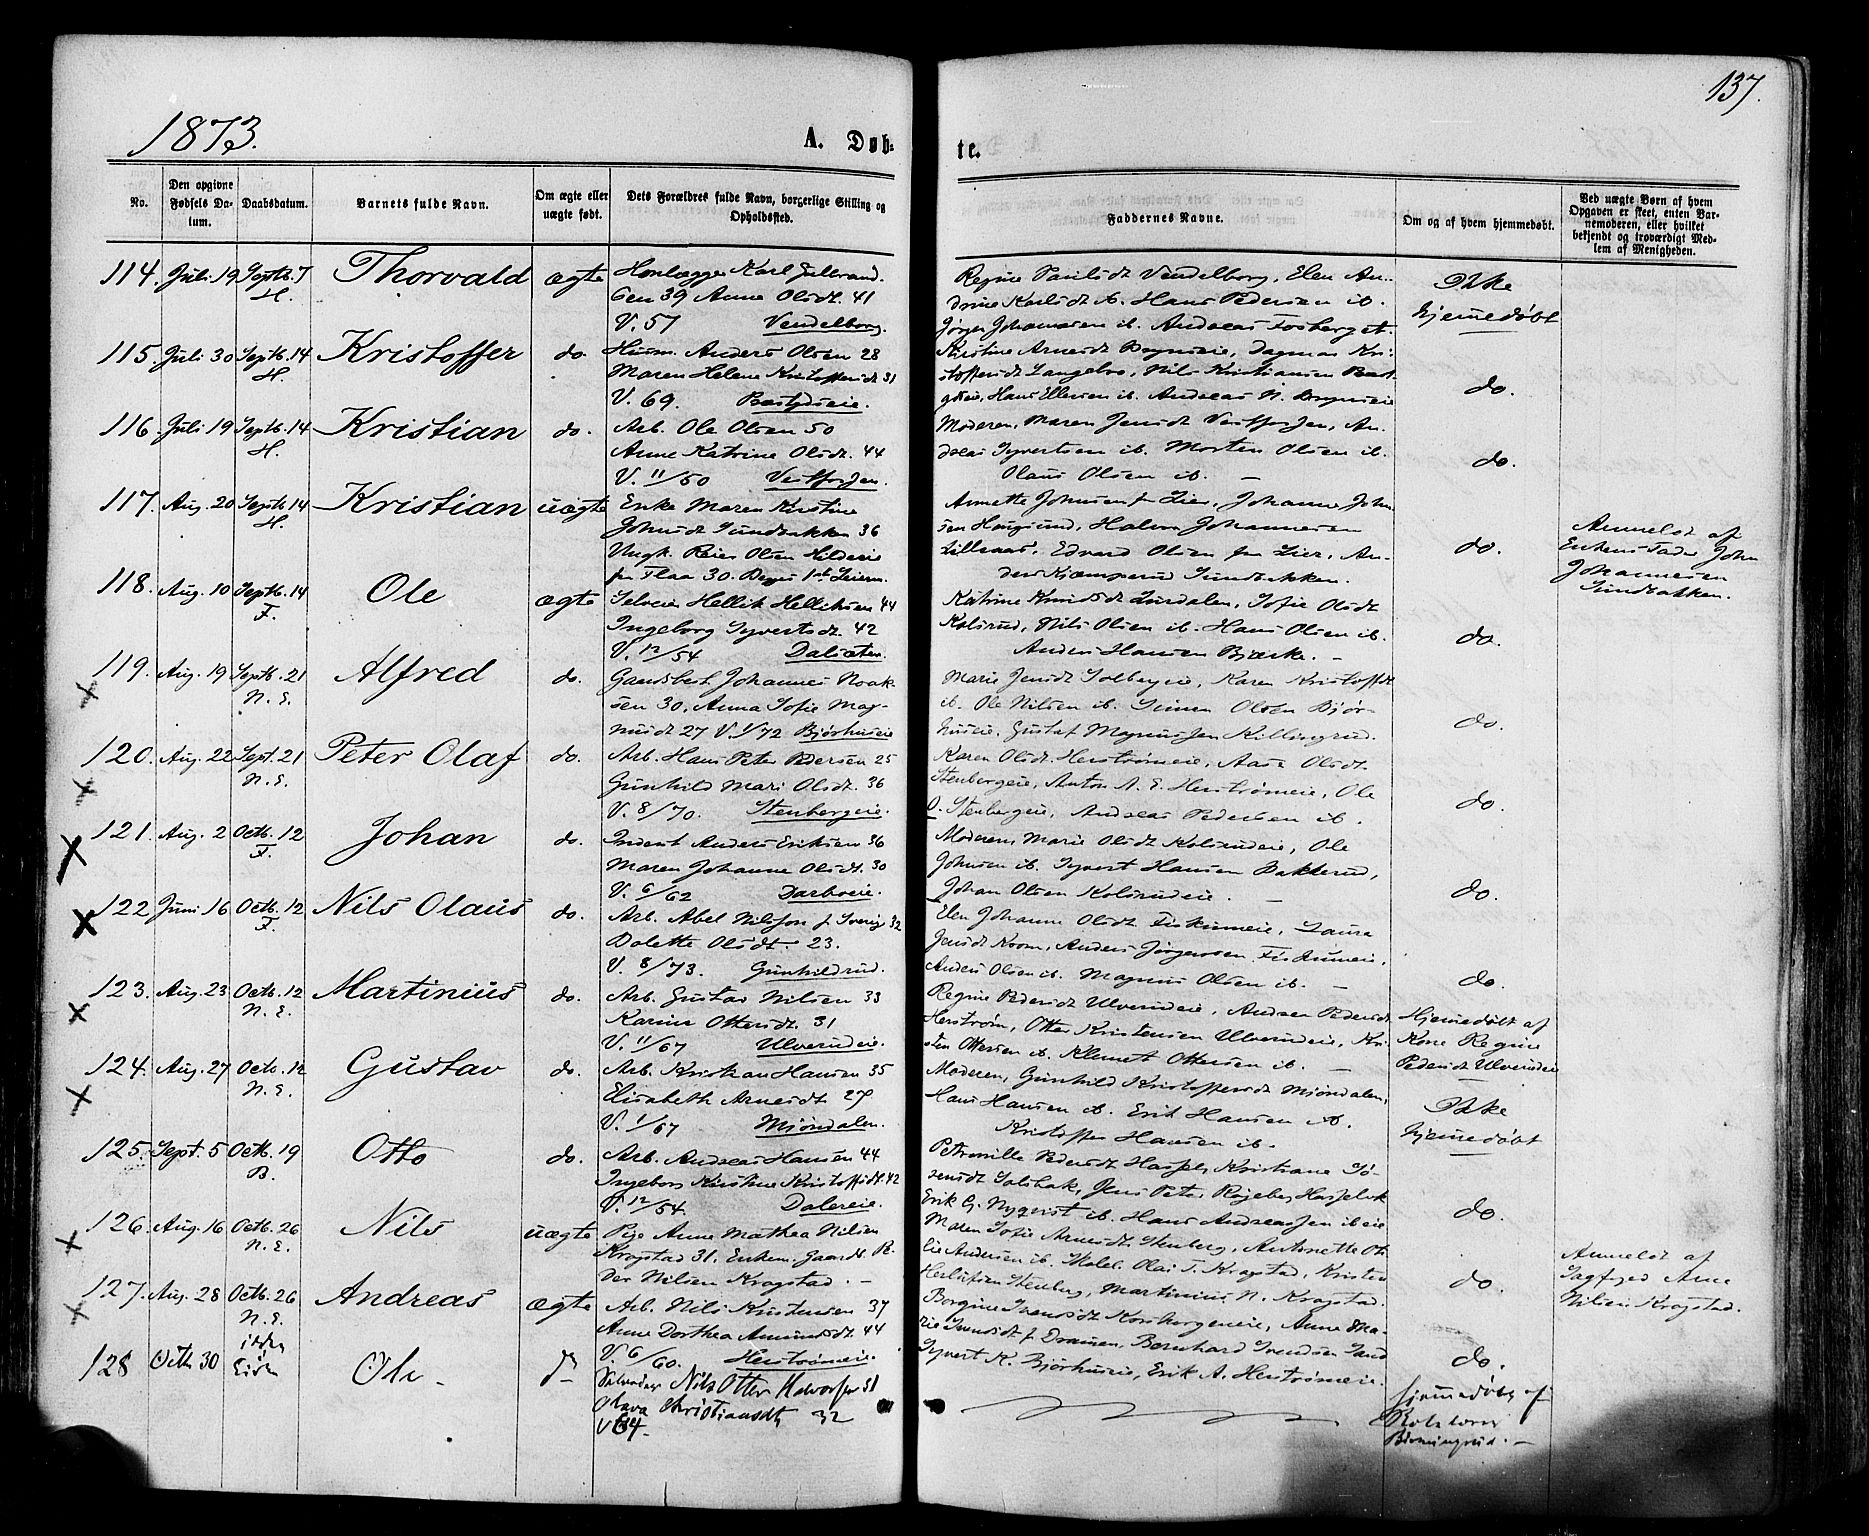 137.
1873.
A. Døb-
te.
No.
Den opgivne Fødsels Datum.
Daabsdatum.
Barnets fulde Navn.
Om ægte eller uægte født.
Dets Forældres fulde Navn, borgerlige Stilling og Opholdssted.
Faddernes Navne.
Om og af hvem hjemmedøbt.
Ved uægte Børn af hvem Opgaven er skeet, enten Barnemoderen, eller hvilket bekjendt og troværdigt Medlem af Menigheden.
114. Juli 19 Septb. 7 H. Thorvald ægte
Karl Gulbrand-
sen 39 Anne Olsdt. 41
V. 57 Vendelborg.
Regine Paulsdt Vendelborg, Elen An-
drine Karlsdt ib. Hans Pedersen ib.
Jørgen Johannesen ib. Andreas
Ikke
hjemmedøbt
115. Juli 30 Septb. 14 H. Kristoffer do.
Husm. Anders Olsen 28
Maren Helene Kristoffersdt 31
V. 69.
Kristine Arnesdt Dagmar Kri-
stoffersdt Langebro, Nils Kristiansen
Hans Ellefsen ib. Andreas N.
do.
116. Juli 19 Septb. 14 H. Kristian do.
Arb. Ole Olsen 50
Anne Katrine Olsdt. 44
V. 11/50 Vestfossen.
Moderen, Maren Jensdt Vestfossen, An-
dreas Syvertsen ib. Morten Olsen ib.
Olaus Olsen ib. —
do.
117. Aug. 20 Septb. 14 H. Kristian uægte
Enke Maren Kristine
Johnsdt Sundbakken 36
Ungk. Reier Olsen
fra Flaa 30. Begges 1st Leierm.
Annette Johnsen fra Lier, Johanne John-
sen Haugsund, Halvor Johannesen
Lilleaas, Edvard Olsen fra Lier, An-
ders Kjæmperud Sundbakken.
do.
Anmeldt af
Enkens Fader John
Johannesen
Sundbakken.
118. Aug. 10 Septb. 14 F. Ole ægte
Selveier Hellik Helliksen 44
Ingeborg Syvertsdt. 42
V. 12/54 Dalsæter.
Katrine Knudsdt Sofie Olsdt
Kolsrud, Nils Olsen ib. Hans Olsen ib.
Anders Hansen Bjerke. —
do.
119. Aug. 19 Septb. 21 N.E. Alfred do.
Gaardsbest. Johannes Noak-
sen 30. Anna Sofie Mag-
nusdt 27 V. 1/72 Bjørhuseie
Marie Jensdt Solbergeie, Karen Kristoffsdt
ib. Ole Nilsen ib. Simen Olsen Bjør-
huseie, Gustaf Magnussen Killingrud.
do.
120. Aug. 22 Sept. 21 N.E. Peter Olaf do.
Arb. Hans Peter Pedersen 25
Gunhild Mari Olsdt. 36
V. 8/70. Stenbergeie.
Karen Olsdt. Herstrømeie, Aase Olsdt.
Stenbergeie, Anton A. E. Herstrømeie, Ole
O. Stenbergeie, Andreas Pedersen ib.
do.
121. Aug. 2 Octb. 12 F. Johan do.
Inderst Anders Eriksen 36
Maren Johanne Olsdt. 30
V. 6/62 Darboeie.
Moderen, Marie Olsdt Kolsrudeie, Ole
Johnsen ib. Syvert Hansen Bakkerud,
Johan Olsen Kolsrudeie. —
do.
122 Juni 16 Octb. 12 F. Nils Olaus do.
Arb. Abel Nilsson f. Sverig 32
Dolette Olsdt. 23.
V. 8/73. Gunhildrud.
Elen Johanne Olsdt Fiskumeie, Laura
Jensdt Krom, Anders Jørgensen Fiskumeie,
Anders Olsen ib. Magnus Olsen ib. —
do.
123. Aug. 23 Octb. 12 N.E. Martinius do.
Arb. Gustav Nilsen 33
Karine Ottersdt. 31
V. 11/67 Ulverudeie.
Regine Pedersdt Ulverudeie, Andrea Pedersdt
Herstrøm, Otter Kristensen Ulverudeie, Kri-
sten Ottersen ib. Klemet Ottersen ib. —
Hjemmedøbt af
Kone Regine
Pedersdt Ulverudeie
124. Aug. 27 Octb. 12 N.E. Gustav do.
Arb. Kristian Hansen 35
Elisabeth Arnesdt 27
V. 1/67 Mjøndalen.
Moderen, Gunhild Kristoffersdt Mjøndalen,
Hans Hansen ib. Erik Hansen ib.
Kristoffer Hansen ib.
Ikke
hjemmedøbt
125. Sept. 5 Octb. 19 B. Otto do.
Arb. Andreas Hansen 44
Ingeborg Kirstine Kristoffsdt. 42
V. 12/54 Dalereie.
Petronille Pedersdt Kristiane
Jens Peter
Erik G. Nyqvist ib. Hans Andreassen ib eie
do.
126. Aug. 16 Octb. 26 N.E. Nils uægte
Pige Anne Mathea Nilsen
Kragstad 31. Enkem. Gaardbr. Pe-
der Nilsen Kragstad. —
Maren Sofie Arnesdt. Stenberg, Antonette Ot-
lie Andersen ib. Olai T. Kragstad, Kristen
Herlufsen Stenberg, Martinius N. Kragstad.
do.
Anmeldt af
Sagfører Arne
Nilsen Kragstad.
127. Aug. 28 Octb. 26 N.E. Andreas ægte
Arb. Nils Kristensen 37
Anne Dorthea Amundsdt. 44
V. 6/60. Herstrømeie.
Borgine Iversdt Anne Ma-
rie f. Dramen, Bernhard
Syvert K. Bjørhuseie, Erik A. Herstrømeie.
do.
128 Octb 30 Ole -
Nils Otter Halvorsen 31
Olava Christiansdt 32
V 64 -
Hjemmedøbt af